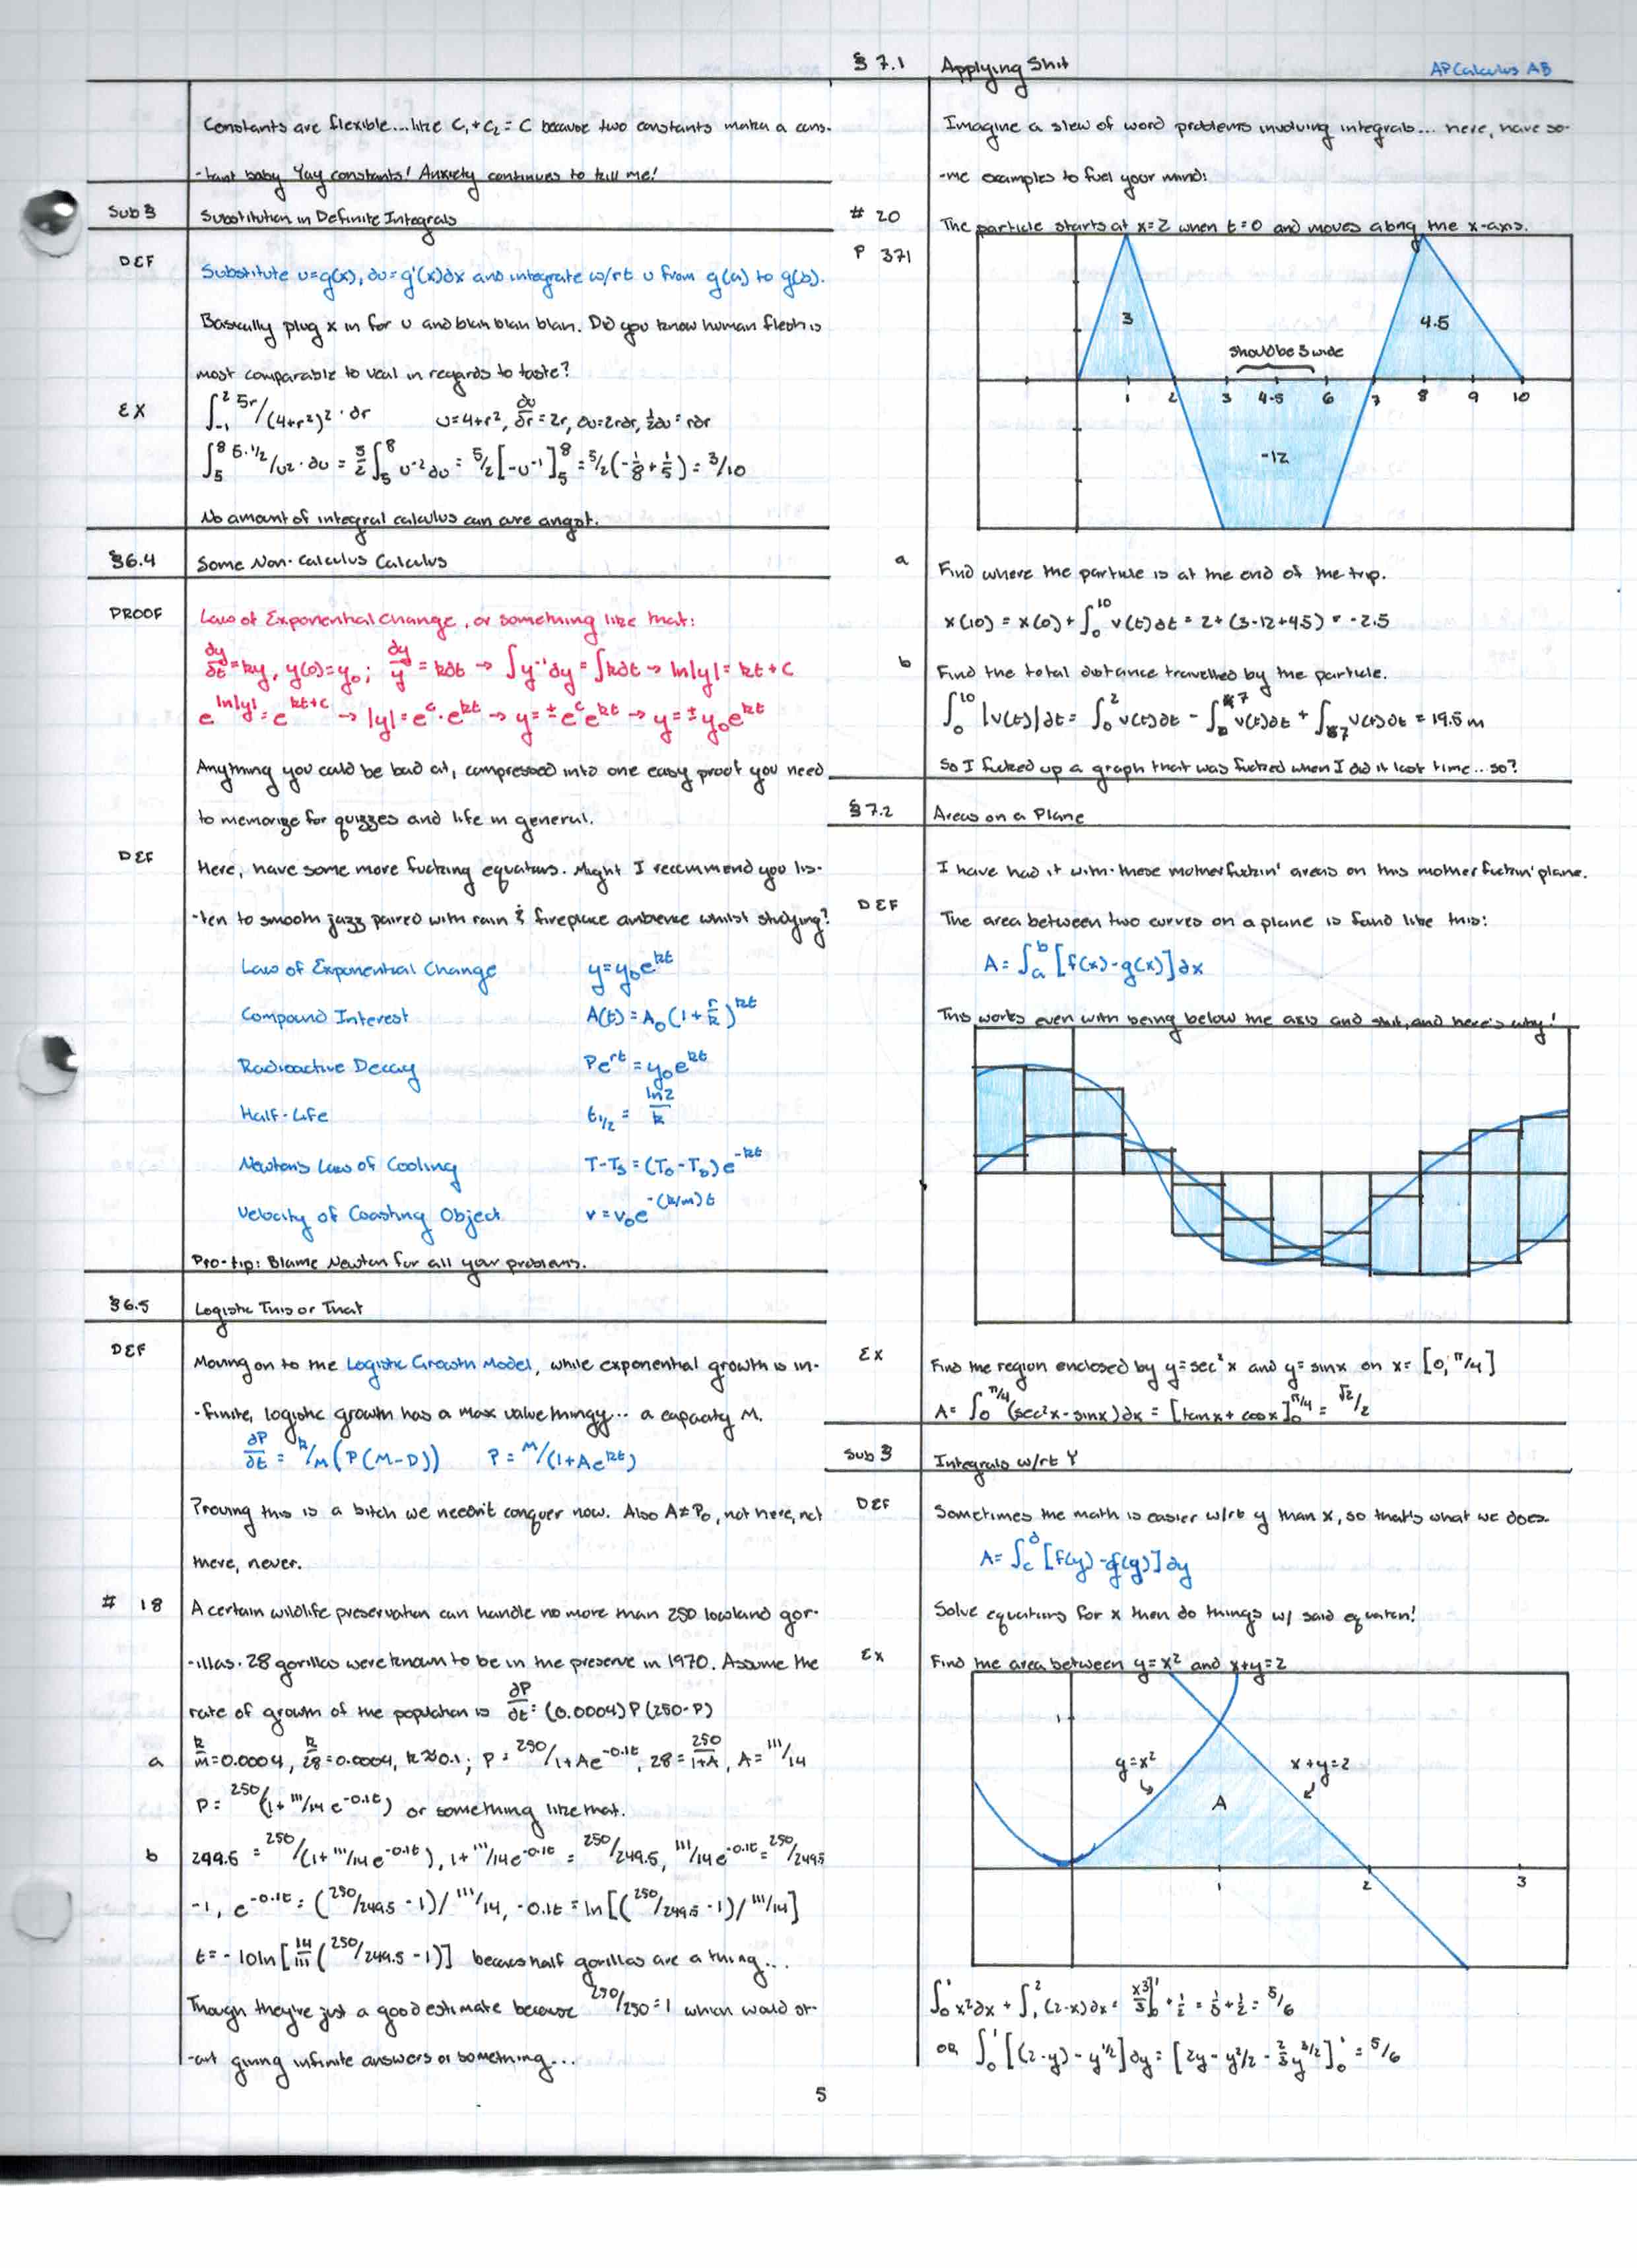 Constants are flexible...like C₁+C₂=C because two constants makea a cons-
-tant baby Yay constants! Anxiety continues to kill me!
Sub 3 Substitution in Definite Integrals
DEF Substitute u=g(x), du=g'(x)dx and integrate w/rt u from g(a) to g(b).
Basically plug x in for u and blah blah blah. Did you know human flesh is
most comparable to veal in regards to taste?
EX ∫₋₁² 5r/(4+r²)² · dr u=4+r², du/dr=2r, du=2rdr, ½du=rdr
∫₅⁸ 5·1/2/u² · du = 5/2 ∫₅⁸ u⁻² du = 5/2[-u⁻¹]₅⁸ = 5/2(-1/8+1/5) = 3/10
No amount of integral calculus can angst.
§6.4 Some Non-Calculus Calculus
PROOF Law of Exponential Change, or something like that:
dy/dt=ky, y(0)=y₀; dy/y=kdt → ∫y⁻¹dy=∫kdt → ln|y|=kt+C
e^ln|y|=e^kt+c → |y|=e^c·e^kt → y=±e^c e^kt → y=±y₀e^kt
Anything you could be bad at, compressed into one easy proof you need
to memorize for quizzes and life in general.
DEF Here, have some more fucking equations. Might I recommend you lis-
-ten to smooth jazz paired with rain & fireplace ambience whilst studying?
Law of Exponential Change y=y₀e^kt
Compound Interest A(t)=A₀(1+r/k)^kt
Radioactive Decay Pe^rt=y₀e^kt
Half-Life t₁/₂=ln2/k
Newton's Law of Cooling T-Ts=(T₀-Ts)e^-kt
Velocity of Coasting Object v=v₀e^-(k/m)t
Pro-tip: Blame Newton for all your problems.
§6.5 Logistic This or That
DEF Moving on to the Logistic Growth Model, while exponential growth is in-
-finite, logistic growth has a max value thingy... a capacity M.
dP/dt=k/M(P(M-D)) P=M/(1+Ae^kt)
Proving this is a bitch we needn't conquer now. Also A≠P₀, not here, not
there, never.
# 18 A certain wildlife preservation can handle no more than 250 lowland gor-
-illas. 28 gorillas were known to be in the preserve in 1970. Assume the
rate of growth of the population is dP/dt=(0.0004)P(250-P)
a k/m=0.0004, k/28=0.0004, k≈0.1; P=250/1+Ae^-0.1t, 28=250/1+A, A=111/14
P=250/(1+111/14e^-0.1t) or something like that.
b 249.5=250/(1+111/14e^-0.1t), 1+111/14e^-0.1t=250/249.5, 111/14e^-0.1t=250/249.5
-1, e^-0.1t=(250/249.5-1)/111/14, -0.1t=ln[(250/249.5-1)/111/14]
t=-10ln[14/111(250/249.5-1)] half gorillas are a thing...
Though they're just a good estimate because 250/250=1 which would st-
-art giving infinite answers or something...
§7.1 Applying Shit AP Calculus AB
Imagine a slew of word problems involving integrals... here, have so-
-me examples to fuel your mind:
# 20 The particle starts at x=2 when t=0 and moves along the x-axis.
P 371
3
4.5
should be 3 wide
1 2 3 4.5 6 7 8 9 10
-12
a Find where the particle is at the end of the trip.
x(10)=x(0)+∫₀¹⁰ v(t)dt=2+(3-12+4.5)=-2.5
b Find the total distance travelled by the particle.
∫₀¹⁰|v(t)|dt=∫₀²v(t)dt-∫₂⁷v(t)dt+∫₇v(t)dt=19.5m
So I fucked up a graph that was fucked when I did it last time...so?
§7.2 Areas on a Plane
I have had it with these motherfuckin' areas on this motherfuckin' plane.
DEF The area between two curves on a plane is found like this:
A=∫ₐᵇ[f(x)-g(x)]dx
This works even with being below the axis and shit, and here's why!
EX Find the region enclosed by y=sec²x and y=sinx on x=[0,π/4]
A=∫₀^π/4(sec²x-sinx)dx=[tanx+cosx]₀^π/4=√2/2
Sub 3 Integrals w/rt Y
DEF Sometimes the math is easier w/rt y than x, so that's what we does.
A=∫c^d[f(y)-g(y)]dy
Solve equations for x then do things w/ said equation!
Ex Find the area between y=x² and x+y=2
1
y=x²
x+y=2
A
1 2 3
∫₀¹x²dx+∫₁²(2-x)dx=x³/3]₀¹+1/2=1/3+1/2=5/6
OR ∫₀¹[(2-y)-y^1/2]dy=[2y-y²/2-2/3y^3/2]₀¹=5/6
5